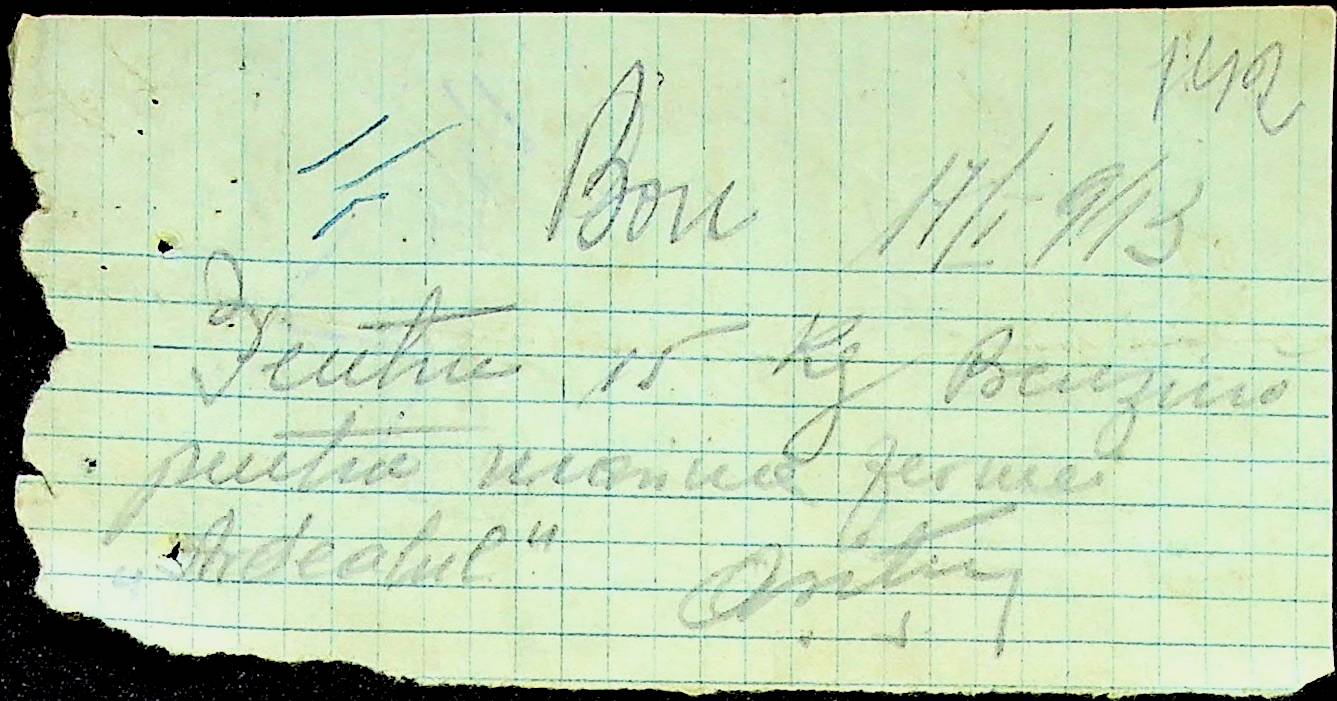 142
Bon 17/V 913
Pentru 15 Kg Benzină
pentru maşina fermei
„Ardealul"